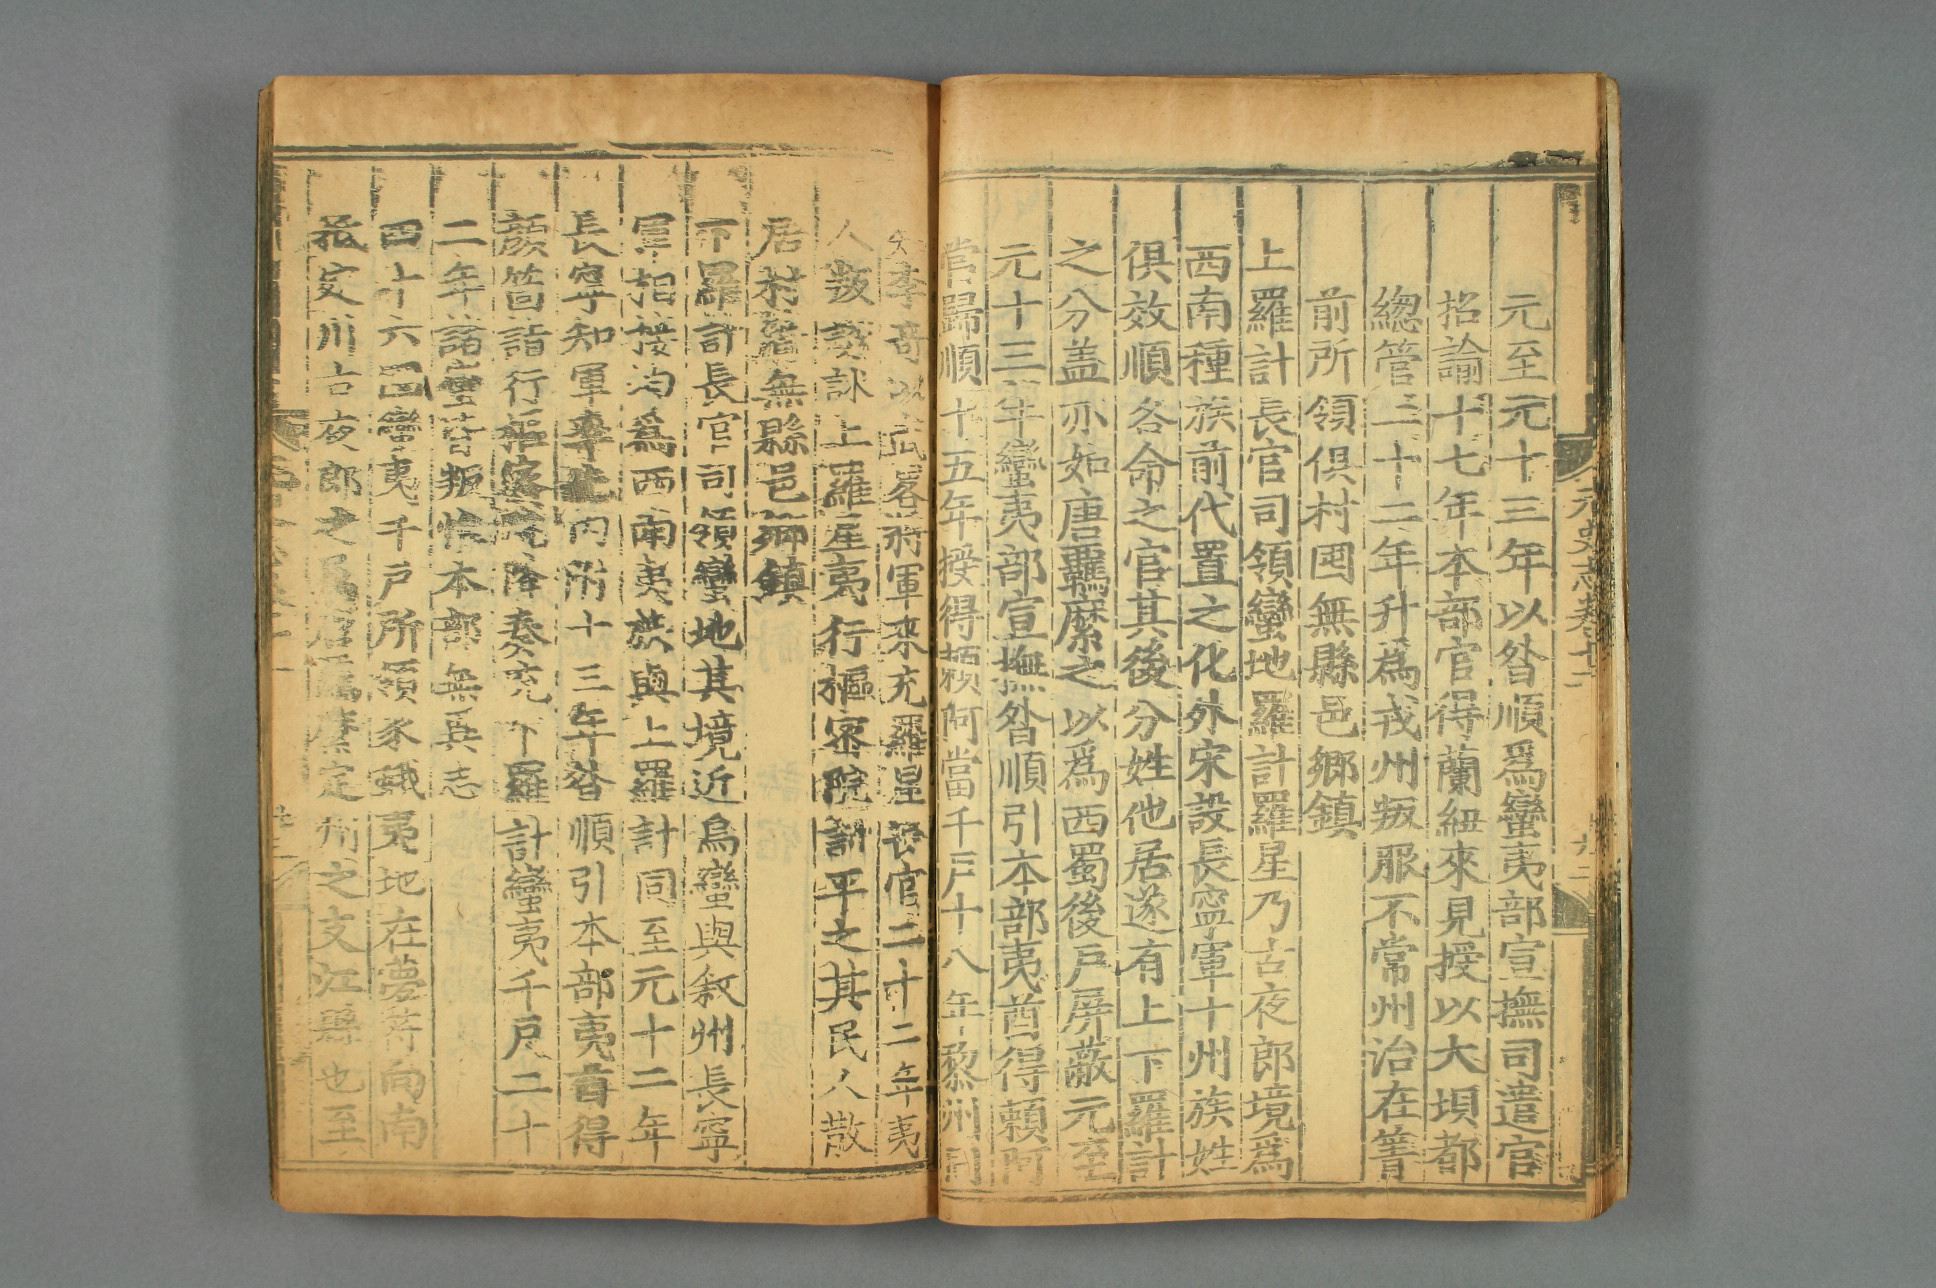 元史志卷十二
六十二
元至元十三年以昝順爲蠻夷部宣撫司遣官
招諭十七年本部官得蘭紐來見授以大埧都
緫管二十二年升爲戎州叛服不常州治在箐
前所領俱村囤無縣邑鄉鎮
上羅計長官司領蠻地羅計羅星乃古夜郎境爲
西南種族前代置之化外宋設長寧軍十州族姓
俱效順各命之官其後分姓他居遂有上下羅計
之分盖亦如唐羈縻之以爲西蜀後戶屏蔽元至
元十三年蠻夷部宣撫昝順引本部夷酋得賴阿
當歸順十五年授得賴阿當千戶十八年黎州同
知李奇以武畧將軍來充羅星長官二十二年夷
人叛誘訹上羅星夷行樞密院討平之其民人散
居村箐無縣邑鄉鎮
下羅計長官司領蠻地其境近烏蠻與叙州長寧
軍相接均爲西南夷族與上羅計同至元十二年
長寧知軍率先內附十三年昝順引本部夷酋得
顏箇詣行樞密院降奏充下羅計蠻夷千戶二十
二年諸蠻皆叛惟本部無異志
四十六囤蠻夷千戶所領豕蛾夷地在夢符向南
抵定川古夜郎之屬唐爲羈縻定州之支江縣也至